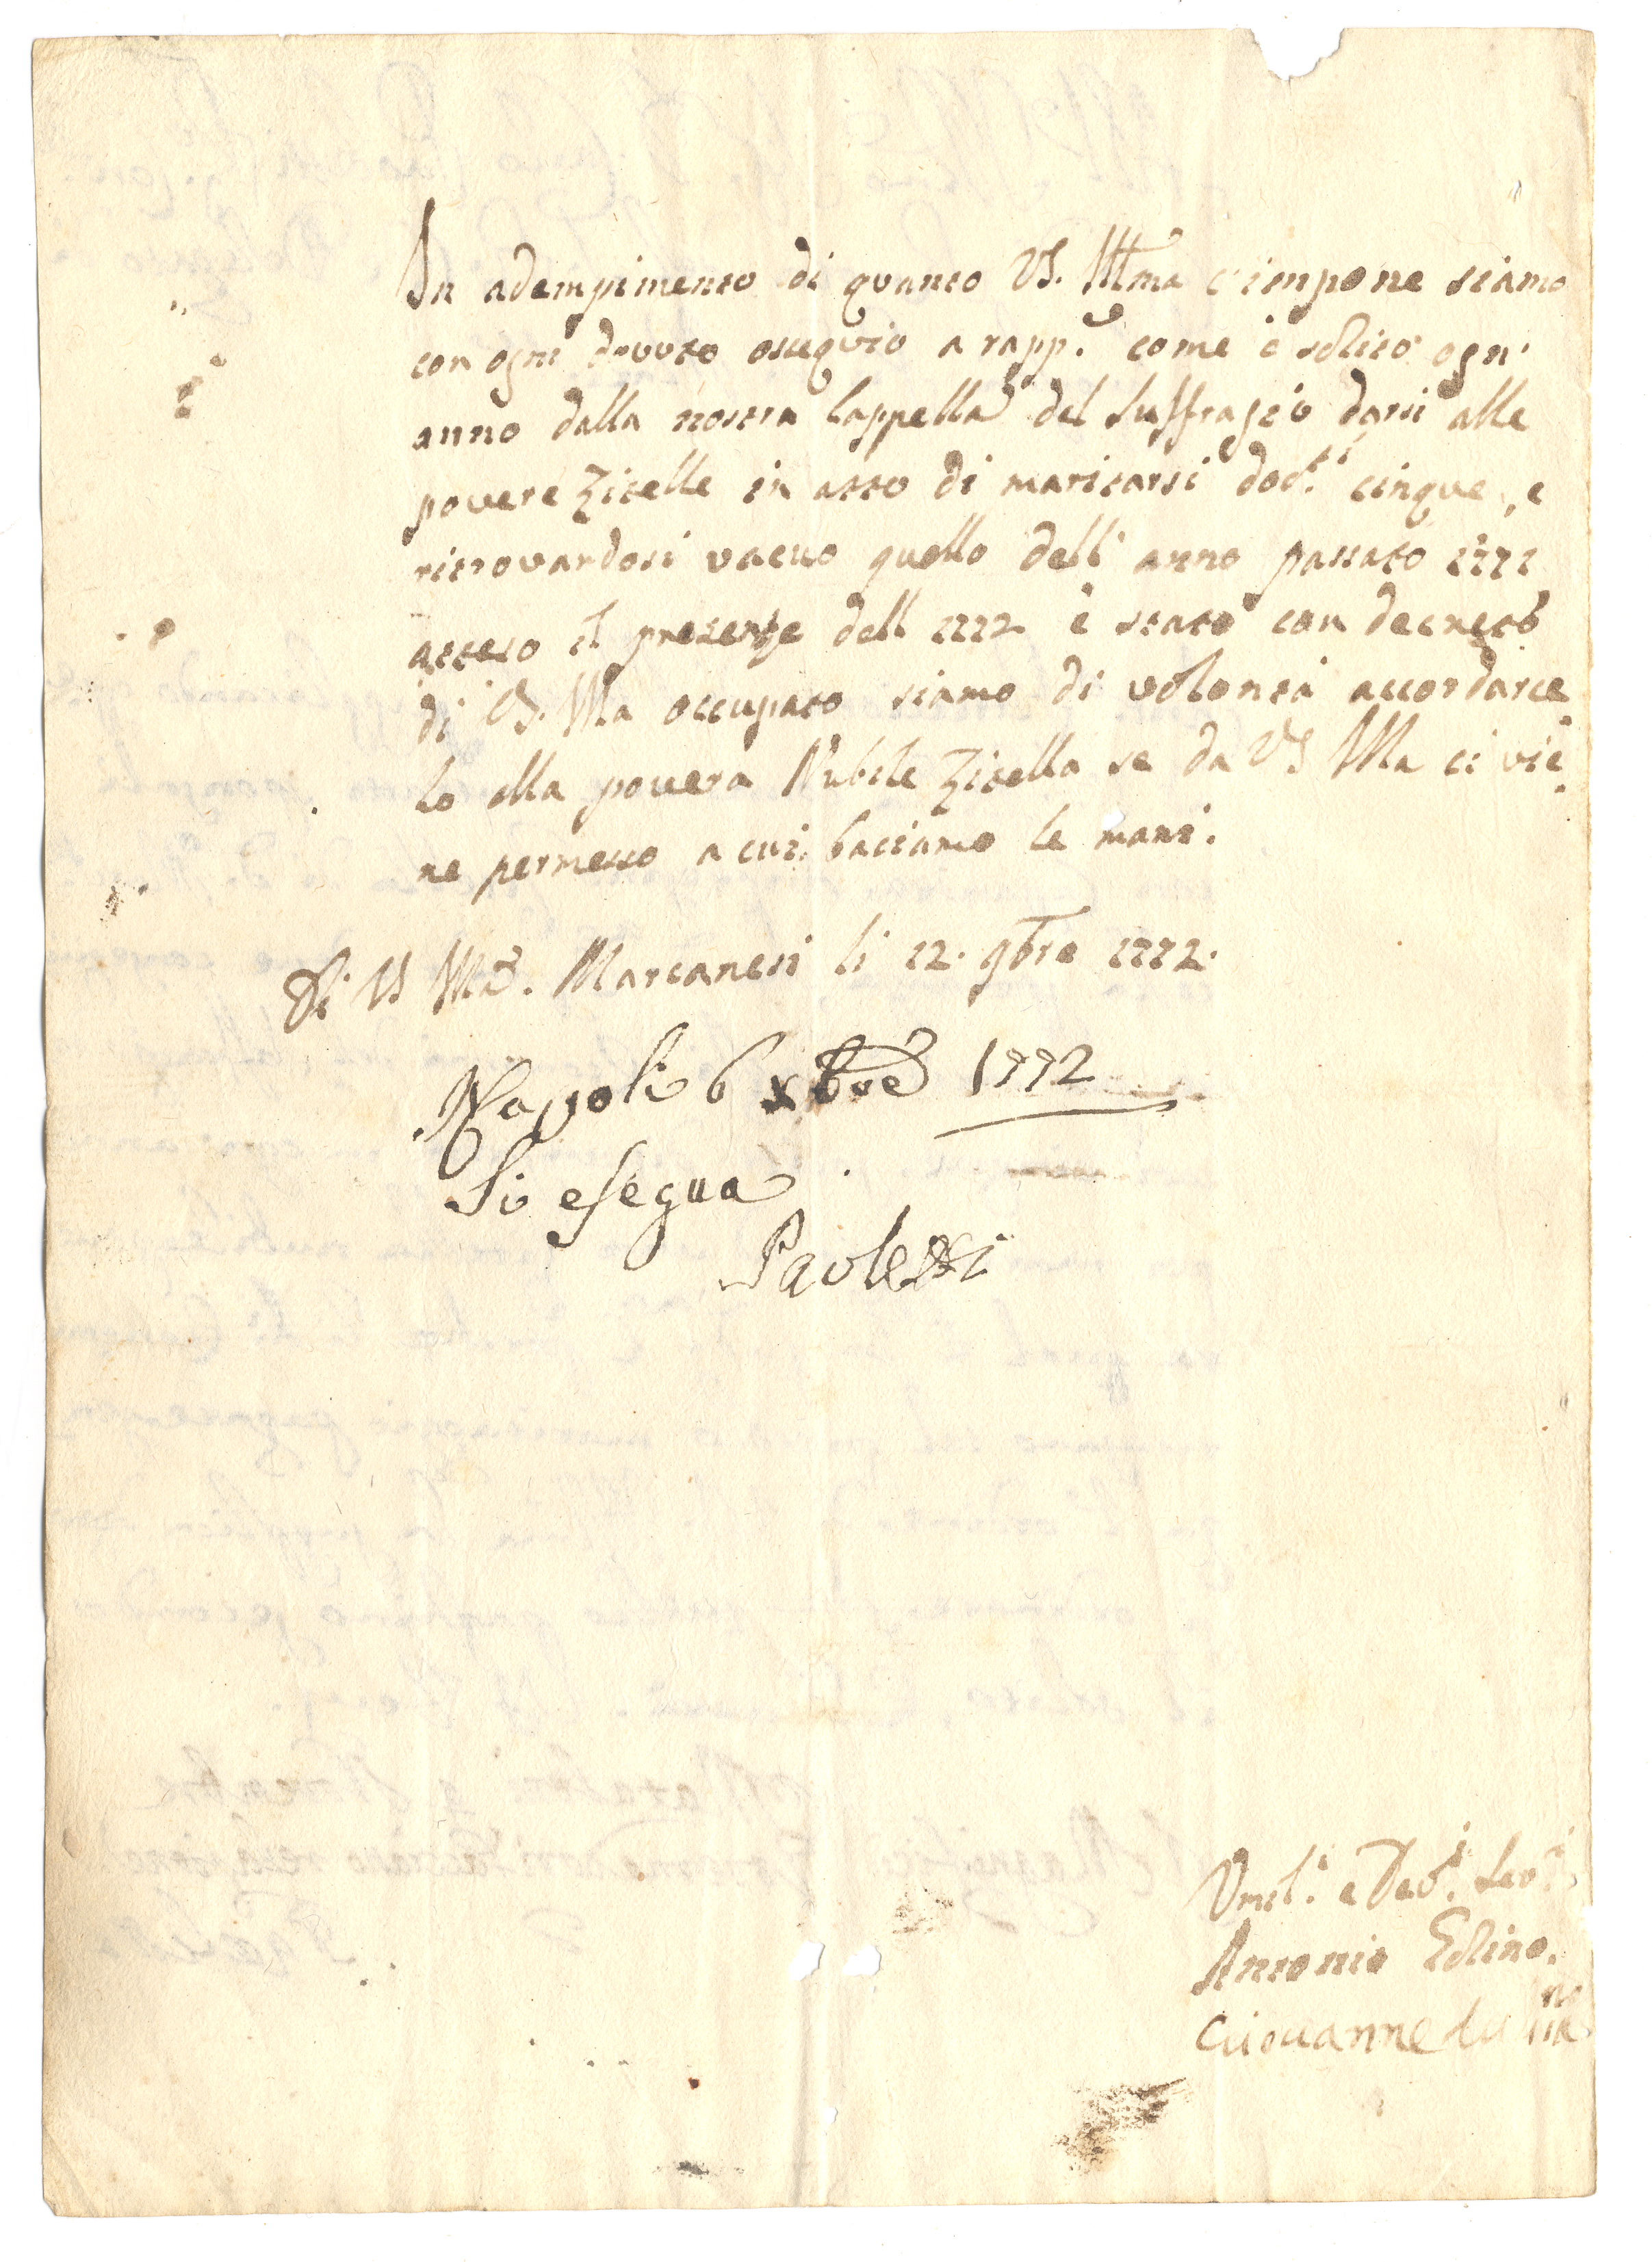 In adempimento di quanto VS. Illma c'impone siamo
con ogni dovuto ossequio a rapp.e come è solito ogn'
anno dalla nostra Cappella del Suffragio darsi alle
povere Zitelle in atto di maritarsi doc.ti cinque, e
ritrovandosi vacuo quello dell'anno passato 1771
atteso il presente dell 1772 è stato con decreto
di VS. Illa occupato siamo di volontà accordarce
lo alla povera Nubile Zitella se da VS Illa ci vie
ne permesso a cui baciamo le mani.
Di VS Illa. Marcanesi li 12. 9bre 1772.
Napoli 6 Xbre 1772
Si esegua
Paoletti
Umil.i e Dev.i Ser.i
Antonio
Giovanne